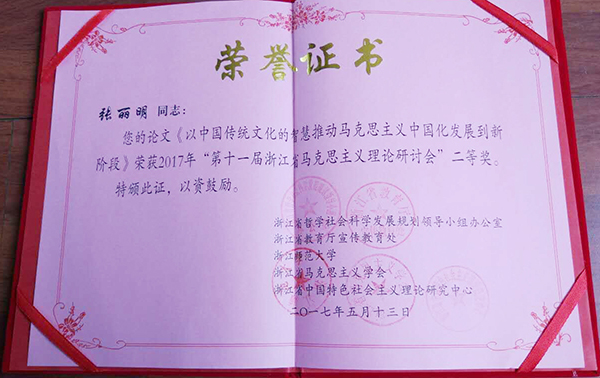 荣誉证书
张丽明 同志：
您的论文《以中国传统文化的智慧推动马克思主义中国化发展到新
阶段》荣获2017年“第十一届浙江省马克思主义理论研讨会”二等奖。
特颁此证，以资鼓励。
浙江省哲学社会科学发展规划领导小组办公室
浙江省教育厅宣传教育处
浙江师范大学
浙江省马克思主义学会
浙江省中国特色社会主义理论研究中心
二〇一七年五月十三日